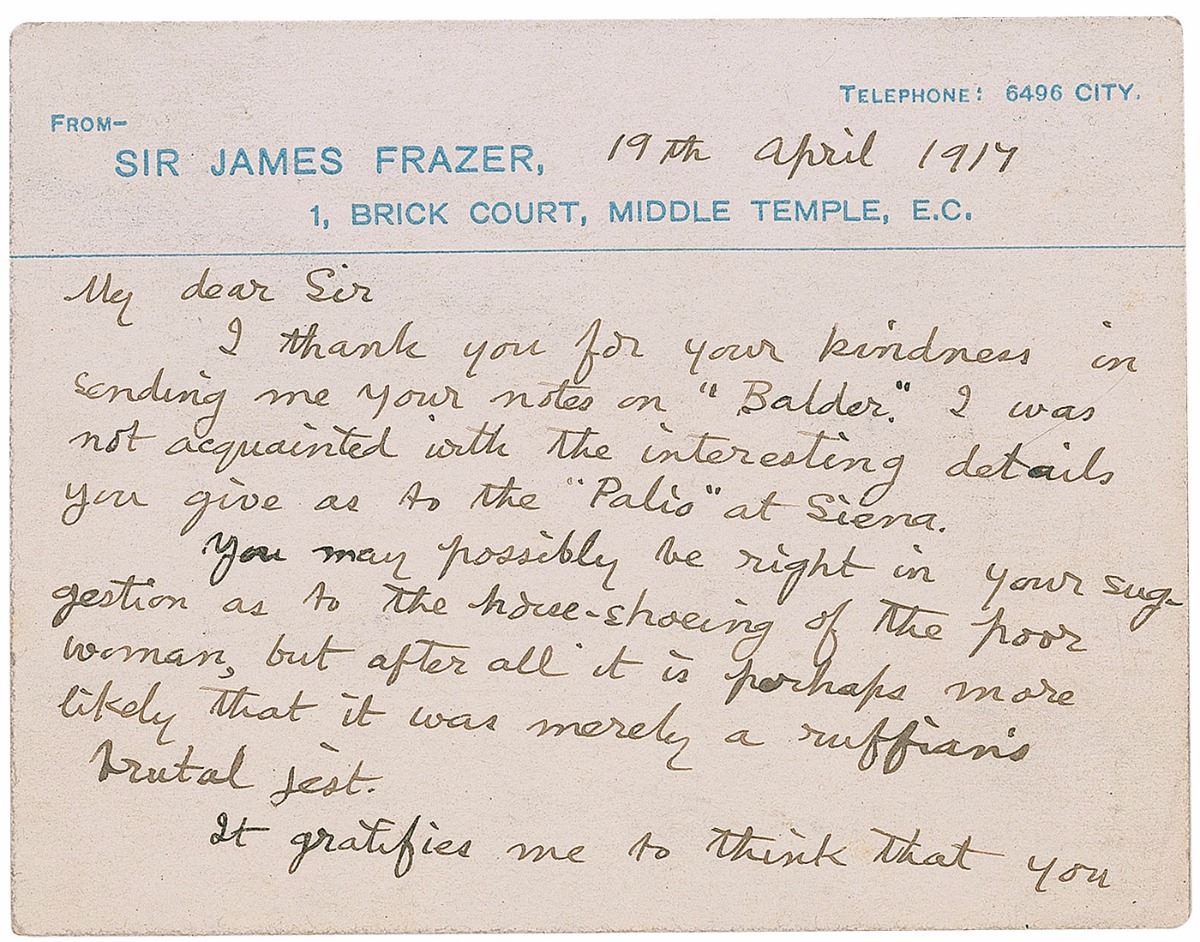 TELEPHONE: 6496 CITY.
FROM—
SIR JAMES FRAZER, 19th April 1917
1, BRICK COURT, MIDDLE TEMPLE, E.C.
My dear Sir
I thank you for your kindness in
sending me your notes on "Balder." I was
not acquainted with the interesting details
you give as to the "Palio" at Siena.
You may possibly be right in your sug-
gestion as to the horse-shoeing of the poor
woman, but after all it is perhaps more
likely that it was merely a ruffian's
brutal jest.
It gratifies me to think that you